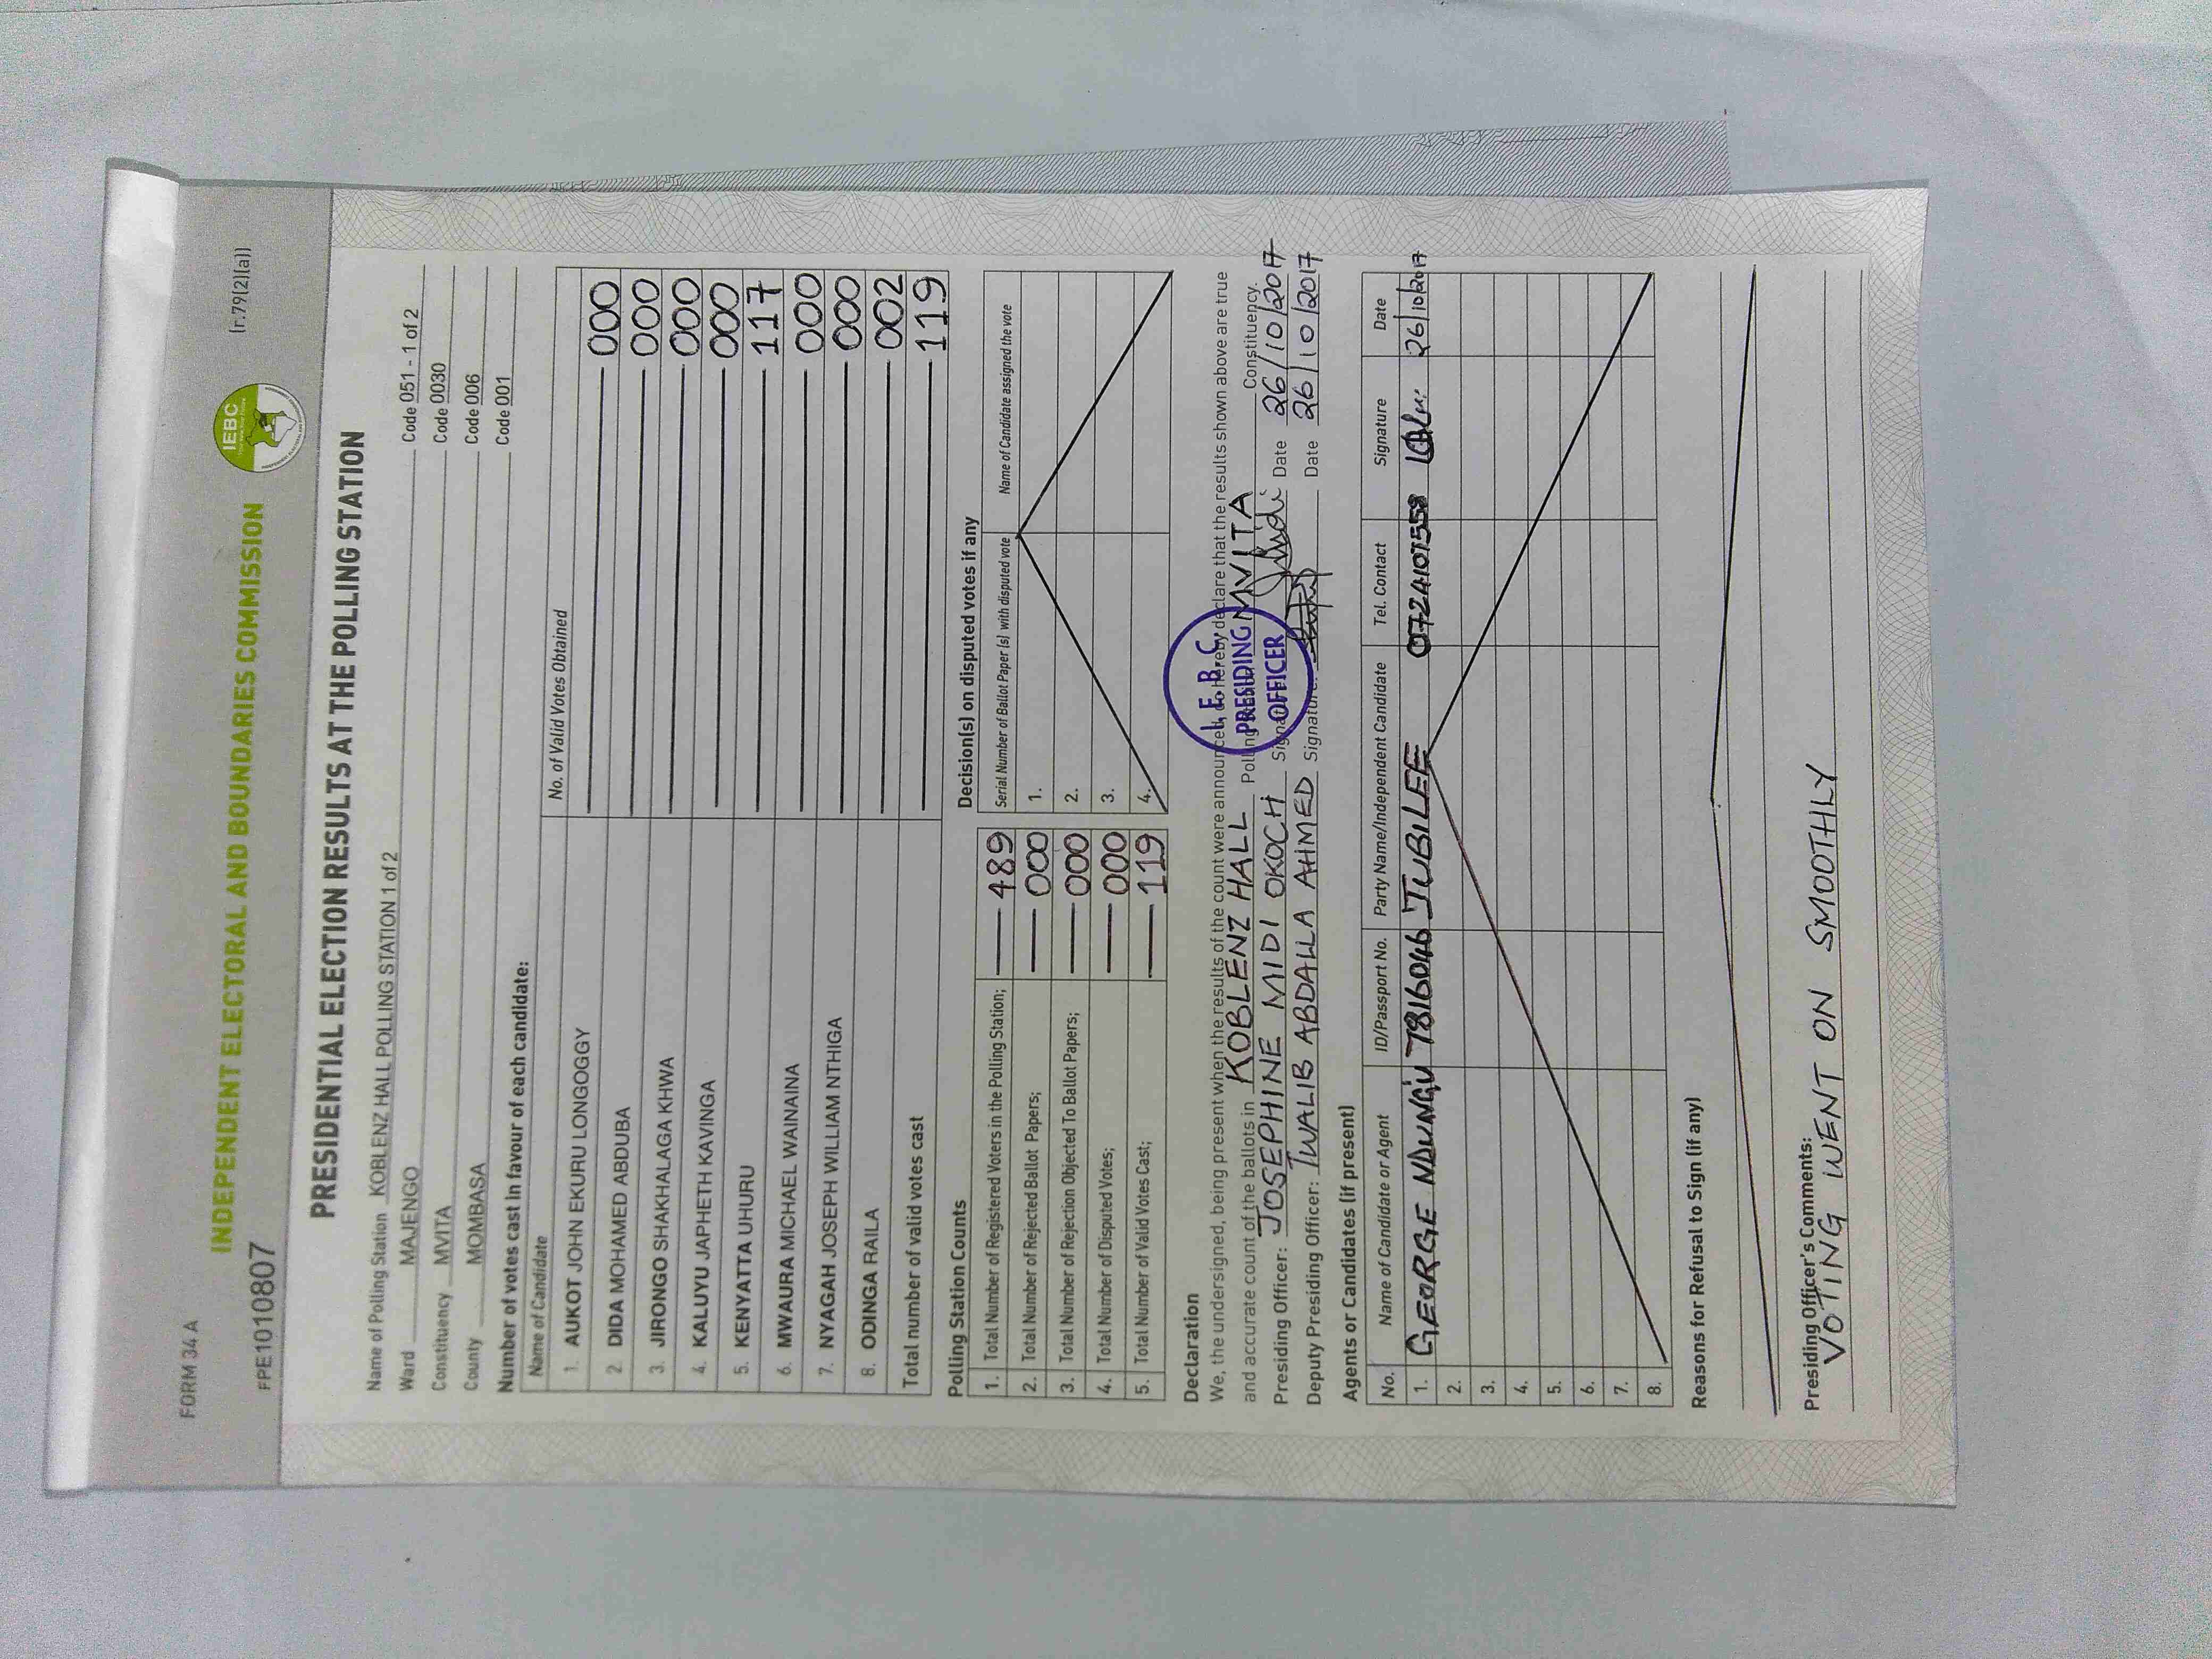 FORM 34 A
INDEPENDENT ELECTORAL AND BOUNDARIES COMMISSION
IEBC
FPE1010807
(r.79(2)(a))
PRESIDENTIAL ELECTION RESULTS AT THE POLLING STATION
Name of Polling Station KOBLENZ HALL POLLING STATION 1 of 2
Ward MAJENGO Code 051 - 1 of 2
Constituency MVITA Code 0030
County MOMBASA Code 006
Code 001
Number of votes cast in favour of each candidate:
Name of Candidate No. of Valid Votes Obtained
1. AUKOT JOHN EKURU LONGOGGY 000
2 DIDA MOHAMED ABDUBA 000
3. JIRONGO SHAKHALAGA KHWA 000
4. KALUYU JAPHETH KAVINGA 000
5. KENYATTA UHURU 117
6. MWAURA MICHAEL WAINAINA 000
7. NYAGAH JOSEPH WILLIAM NTHIGA 000
8. ODINGA RAILA 002
Total number of valid votes cast 119
Polling Station Counts
1. Total Number of Registered Voters in the Polling Station; 489
2. Total Number of Rejected Ballot Papers; 000
3. Total Number of Rejection Objected To Ballot Papers; 000
4. Total Number of Disputed Votes; 000
5. Total Number of Valid Votes Cast; 119
Decision(s) on disputed votes if any
Serial Number of Ballot Paper (s) with disputed vote Name of Candidate assigned the vote
1.
2.
3.
4.
Declaration
We, the undersigned, being present when the results of the count were announced, do hereby declare that the results shown above are true
and accurate count of the ballots in KOBLENZ HALL Polling MVITA Constituency.
Presiding Officer: JOSEPHINE MIDI OKOCH Signature Date 26/10/2017
Deputy Presiding Officer: TWALIB ABDALLA AHMED Signature: Date 26/10/2017
I.E.B.C.
PRESIDING
OFFICER
Agents or Candidates (if present)
No. Name of Candidate or Agent ID/Passport No. Party Name/Independent Candidate Tel. Contact Signature Date
1. GEORGE NDUNGU 7816046 JUBILEE 0724101558 26/10/2017
2.
3.
4.
5.
6.
7.
8.
Reasons for Refusal to Sign (if any)
Presiding Officer's Comments:
VOTING WENT ON SMOOTHLY